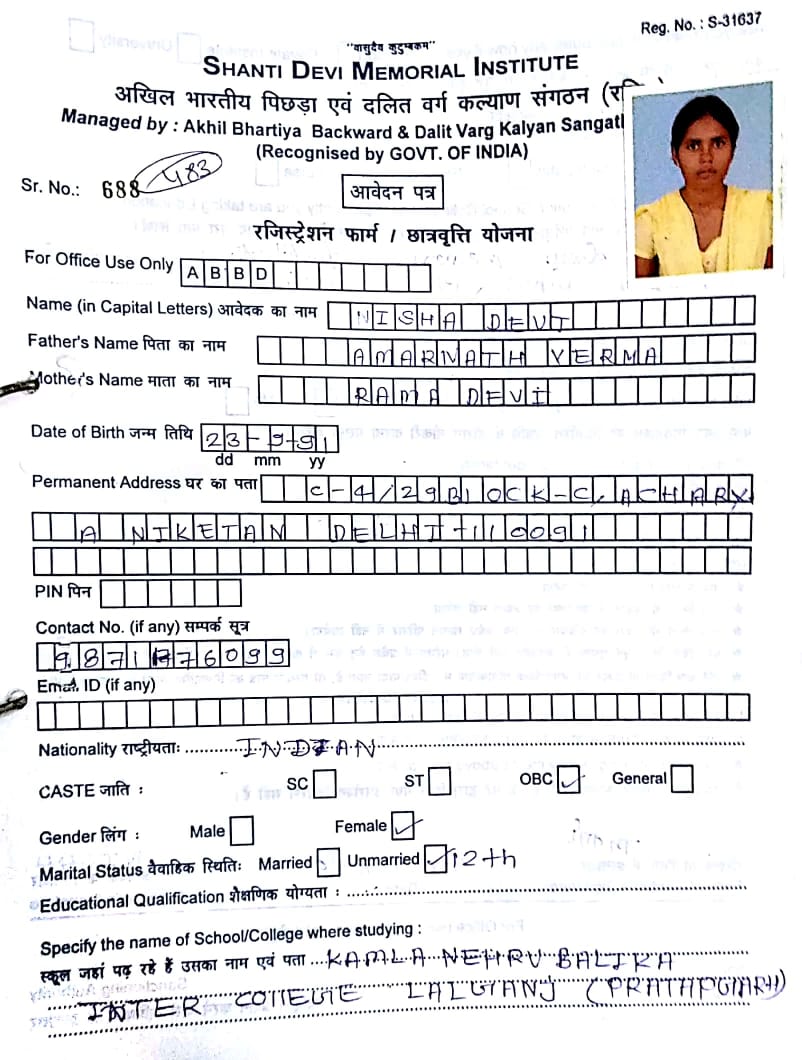 Reg. No. : S-31637
"वासुदेव कुटुम्बकम"
SHANTI DEVI MEMORIAL INSTITUTE
अखिल भारतीय पिछड़ा एवं दलित वर्ग कल्याण संगठन (रजि
Managed by : Akhil Bhartiya Backward & Dalit Varg Kalyan Sangat
(Recognised by GOVT. OF INDIA)
Sr. No.: 688 483
आवेदन पत्र
रजिस्ट्रेशन फार्म / छात्रवृत्ति योजना
For Office Use Only ABBD
Name (in Capital Letters) आवेदक का नाम NISHA DEVI
Father's Name पिता का नाम AMARNATH VERMA
Mother's Name माता का नाम RAMA DEVI
Date of Birth जन्म तिथि 23-9-91
dd mm yy
Permanent Address घर का पता C-4/29BlOCK-C, ACHARY
A NIKETAN DELHI-110091
PIN पिन
Contact No. (if any) सम्पर्क सूत्र
9871176099
Email ID (if any)
Nationality राष्ट्रीयताः INDIAN
CASTE जाति : SC ST OBC ✓ General
Gender लिंग : Male Female ✓
Marital Status वैवाहिक स्थितिः Married Unmarried ✓ 12th
Educational Qualification शैक्षणिक योग्यता :
Specify the name of School/College where studying :
स्कूल जहां पढ़ रहे हैं उसका नाम एवं पता KAMLA NEHRU BALIKA
INTER COLLEGE LALGANJ (PRATAPGARH)